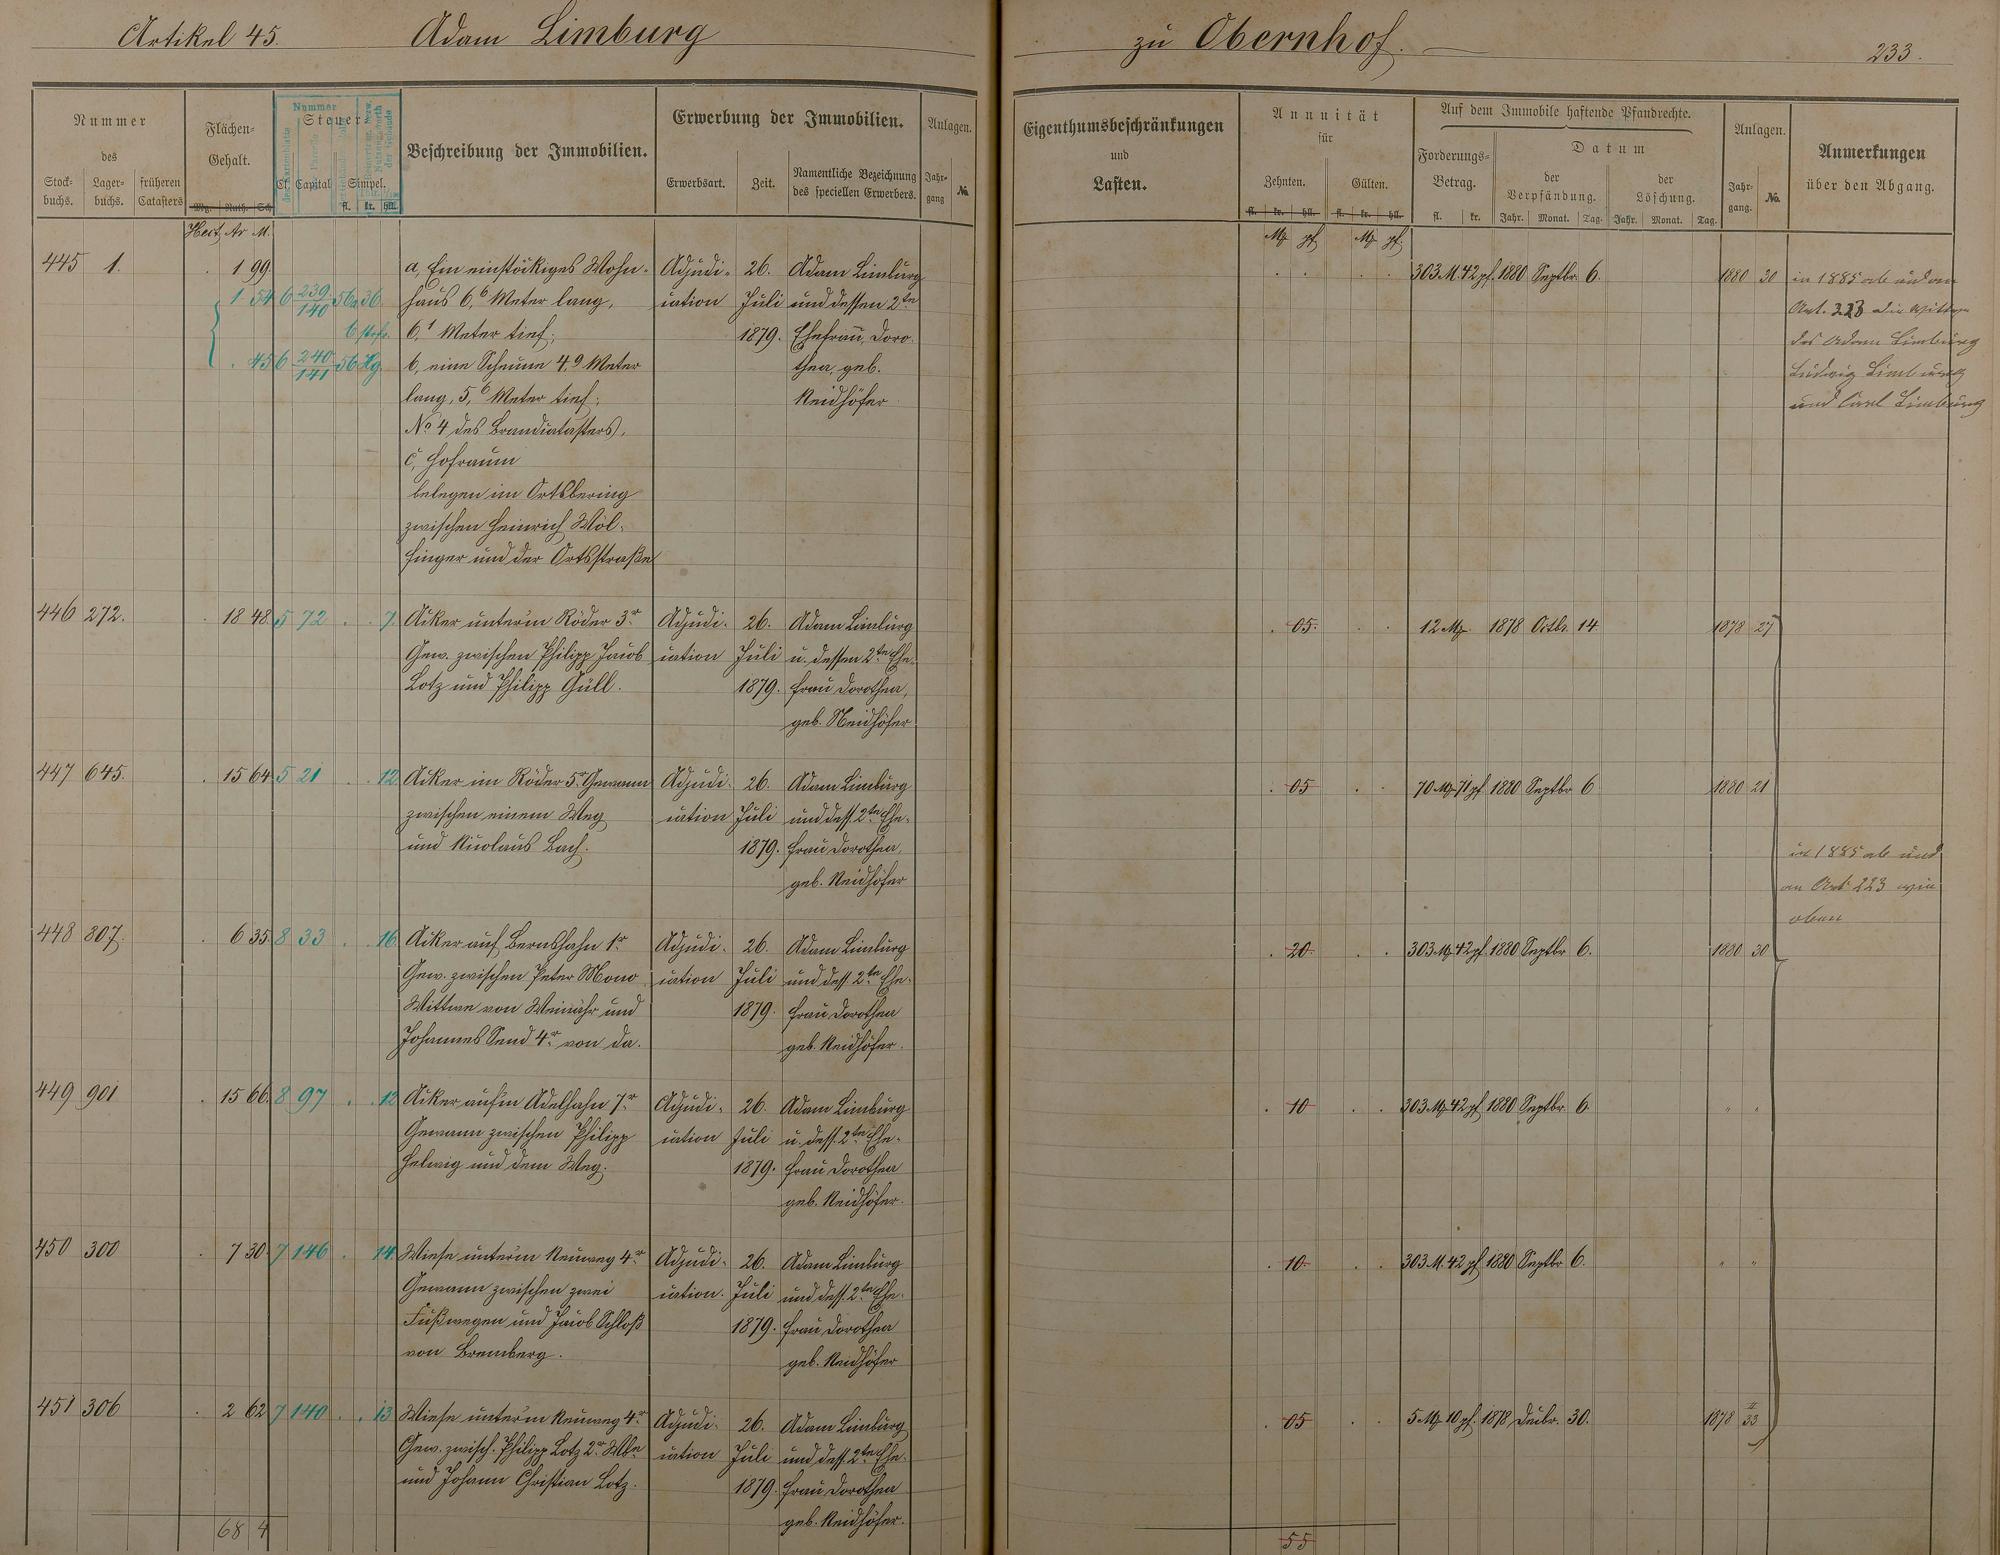 Artikel 45.
Adam Limburg
zu Obernhof.
233.
Nummer
des
Stock-
buchs.
Lager-
buchs.
früheren
Catasters
Flächen-
Gehalt.
Mg. Ruth. Sch.
Hect. Ar M.
Nummer
Steuer
Cl. Capital Simpel.
fl. kr. hll.
Beschreibung der Immobilien.
Erwerbung der Immobilien.
Erwerbsart.
Zeit.
Namentliche Bezeichnung
des speciellen Erwerbers.
Anlagen.
Jahr-
gang
No.
Eigenthumsbeschränkungen
und
Lasten.
Annuität
für
Zehnten.
Gülten.
fl. kr. hll. fl. kr. hll.
M pf M pf
Auf dem Immobile haftende Pfandrechte.
Forderungs-
Betrag.
fl. kr.
Datum
der
Verpfändung.
Jahr. Monat. Tag.
der
Löschung.
Jahr. Monat. Tag.
Anlagen.
Jahr-
gang.
No.
Anmerkungen
über den Abgang.
445 1. 1 99.
1 54 6 239/140 56a 36
45 6 240/141 56 Hg.
a, Ein einstöckiges Wohn-
haus 6,6 Meter lang,
6,1 Meter tief;
b, eine Scheune 4,9 Meter
lang, 5,6 Meter tief;
No 4 des Brandcatasters,
c, Hofraum
belegen im Ortsbering
zwischen Heinrich Wöl-
finger und der Ortsstraße
Adjudi-
cation
26.
Juli
1879.
Adam Limburg
und dessen 2te
Ehefrau, Doro-
thea, geb.
Neidhöfer
303 M 42 pf. 1880 Septbr. 6. 1880 30
in 1885 ab und an
Art. 223 die Wittwe
des Adam Limburg
Ludwig Limburg
und Carl Limburg
446 272. 18 48. 5 72 7.
Acker unterm Röder 3r
Gew. zwischen Philipp Jacob
Lotz und Philipp Güll.
Adjudi-
cation
26.
Juli
1879.
Adam Limburg
u. dessen 2te Ehe-
frau Dorothea,
geb. Neidhöfer
05. 12 M 1878 Octbr. 14. 1878 27
447 645. 15 64 5 21 12
Acker im Röder 5r Gewann
zwischen einem Weg
und Nicolaus Bach.
Adjudi-
cation
26.
Juli
1879.
Adam Limburg
und dess. 2te Ehe-
frau Dorothea,
geb. Neidhöfer
05 70 M 71 pf 1880 Septbr 6 1880 21
in 1885 ab und
an Art 223 wie
oben
448 807. 6 35. 8 33 16
Acker auf Bernshahn 1r
Gew. zwischen Peter Mono
Wittwe von Weinähr und
Johannes Send 4r von da.
Adjudi-
cation
26.
Juli
1879.
Adam Limburg
und dess. 2te Ehe-
frau Dorothea
geb. Neidhöfer.
20 303 M 42 pf. 1880 Septbr 6. 1880 30
449 901 15 66. 8 97 12
Acker auf'm Adelhahn 7r
Gewann zwischen Philipp
Helwig und dem Weg.
Adjudi-
cation
26.
Juli
1879.
Adam Limburg
u. dess. 2te Ehe-
frau Dorothea
geb. Neidhöfer.
10 303 M 42 pf 1880 Septbr. 6. " "
450 300 7 30. 7 146 14.
Wiese unterm Neuweg 4r
Gewann zwischen zwei
Fußwegen und Jacob Schloß
von Bremberg.
Adjudi-
cation.
26.
Juli
1879.
Adam Limburg
und dess. 2te Ehe-
frau Dorothea
geb. Neidhöfer
10. 303 M. 42 pf 1880 Septbr 6. " "
451 306 2 62 7 140 13
Wiese unterm Neuweg 4r
Gew. zwisch. Philipp Lotz 2r Wbe
und Johann Christian Lotz.
Adjudi-
cation
26.
Juli
1879.
Adam Limburg
und dess. 2te Ehe-
frau Dorothea
geb. Neidhöfer.
05 5 M 10 pf. 1878 Decbr. 30. 1878 II 33
68 4
55